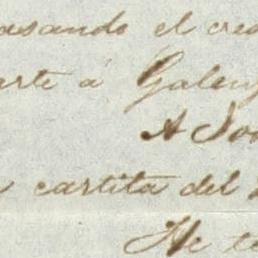 asando el cre
arte á Galen
A Joa
cartita del
He te